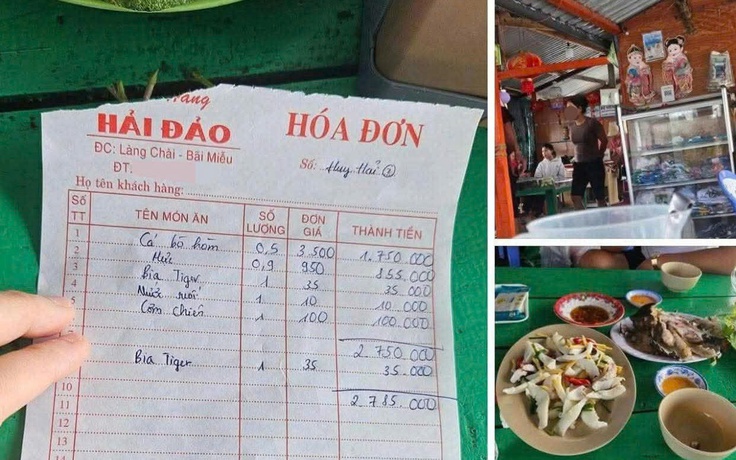 Hàng
HẢI ĐẢO
HÓA ĐƠN
ĐC: Làng Chài - Bãi Miễu
ĐT.
Số: Huy Hải 2
Họ tên khách hàng:
Số TT TÊN MÓN ĂN SỐ LƯỢNG ĐƠN GIÁ THÀNH TIỀN
1 Cá bò hòm 0,5 3.500 1.750 000
2 Mực 0,9 950 855.000
3 Bia Tiger 1 35 35 000
4 Nước suối 1 10 10 000
5 Cơm chiên 1 100 100.000
2.750 000
Bia Tiger 1 35 35.000
10
11 2.785.000
12
13
14